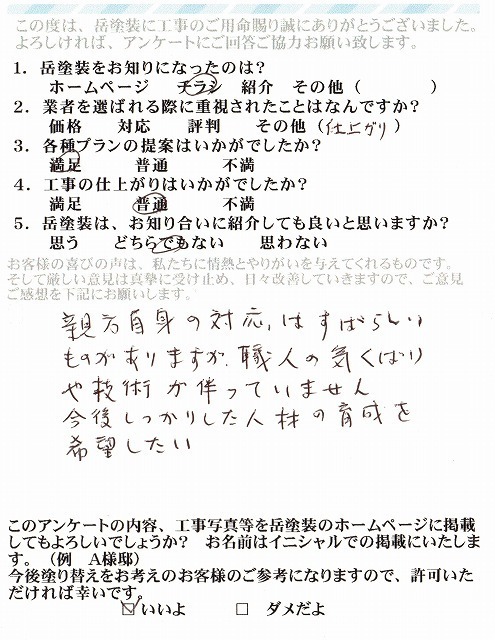 この度は、岳塗装に工事のご用命賜り誠にありがとうございました。
よろしければ、アンケートにご回答ご協力お願い致します。
1．岳塗装をお知りになったのは？
ホームページ　チラシ　紹介　その他（　　　　）
2．業者を選ばれる際に重視されたことはなんですか？
価格　対応　評判　その他（仕上がり）
3．各種プランの提案はいかがでしたか？
満足　普通　不満
4．工事の仕上がりはいかがでしたか？
満足　普通　不満
5．岳塗装は、お知り合いに紹介しても良いと思いますか？
思う　どちらでもない　思わない
お客様の喜びの声は、私たちに情熱とやりがいを与えてくれるものです。
そして厳しい意見は真摯に受け止め、日々改善していきますので、ご意見
ご感想を下記にお願いします。
親方自身の対応はすばらしい
ものがありますが、職人の気くばり
や技術が伴っていません
今後しっかりした人材の育成を
希望したい
このアンケートの内容、工事写真等を岳塗装のホームページに掲載
してもよろしいでしょうか？　お名前はイニシャルでの掲載にいたしま
す。（例　A様邸）
今後塗り替えをお考えのお客様のご参考になりますので、許可いた
だければ幸いです。
☑いいよ　□ ダメだよ